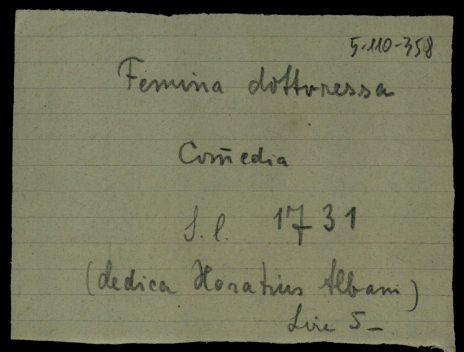 5-110-358
Femina dottoressa
Com̃edia
S. l. 1731
(dedica Horatius Albani)
Lire 5_